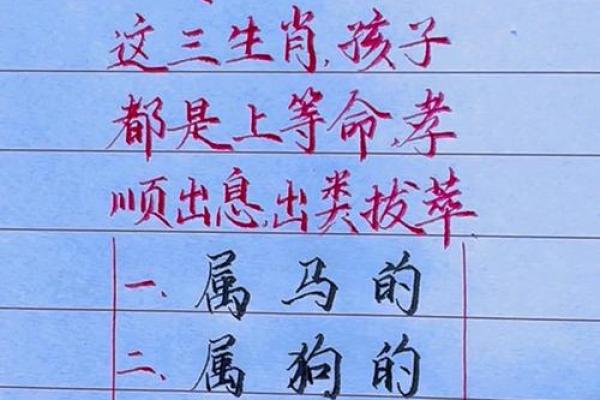 这三生肖,孩子
都是上等命,孝
顺出息,出类拔萃
一、属马的
二、属狗的